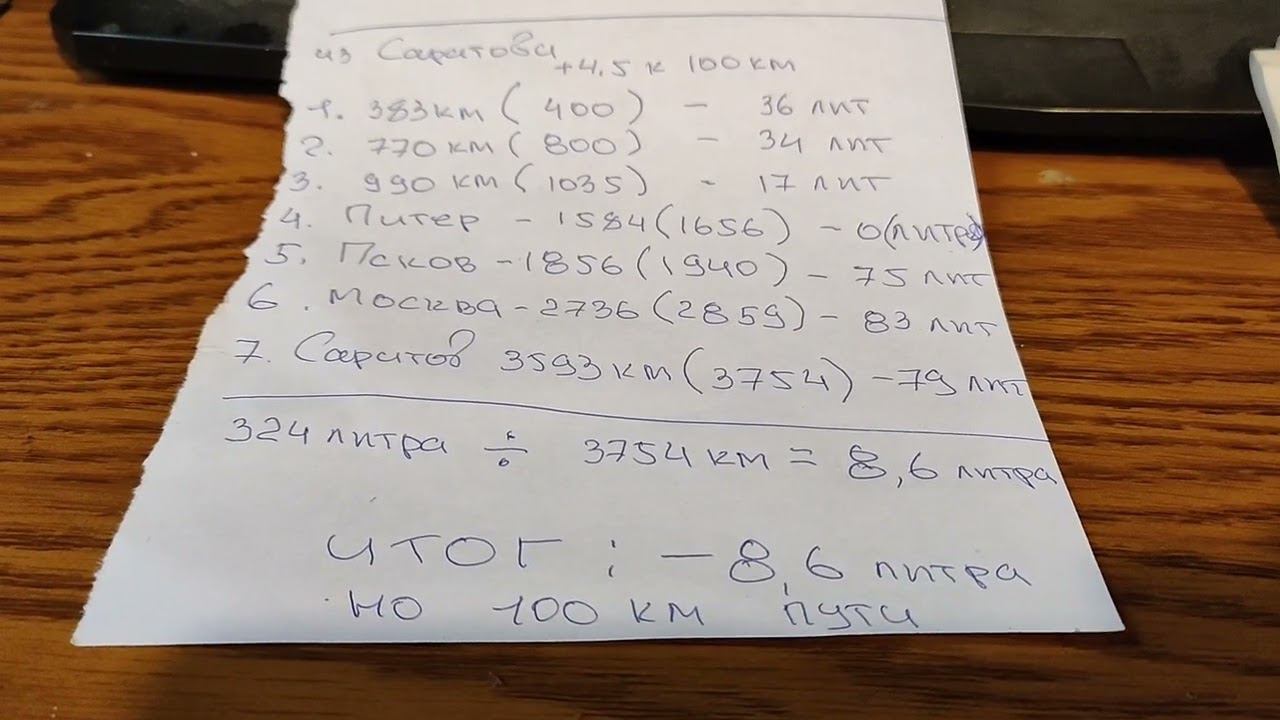 из Саратова
+4.5 к 100 км
1. 383 км (400) - 36 лит
2. 770 км (800) - 34 лит
3. 990 км (1035) - 17 лит
4. Питер - 1584 (1656) - 0 (литров)
5. Псков - 1856 (1940) - 75 лит
6. Москва - 2736 (2859) - 83 лит
7. Саратов 3593 км (3754) - 79 лит
324 литра ÷ 3754 км = 8,6 литра
итог : - 8,6 литра
на 100 км пути